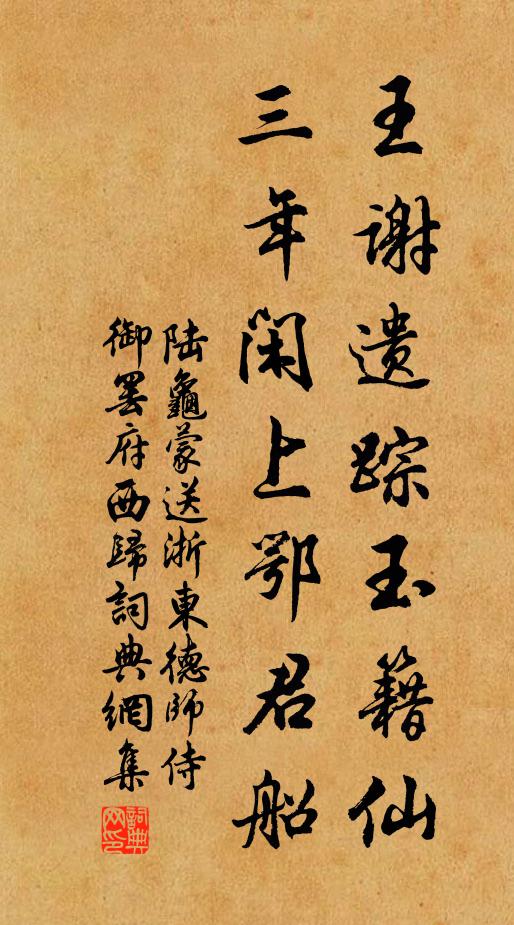 王谢遗踪玉籍仙
三年闲上鄂君船
陆龜蒙送浙東德師侍
御罢府西歸詞典網集
詞典网印